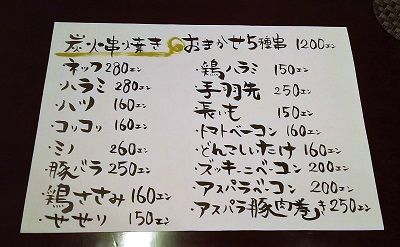 炭火串焼き おまかせ5種串 1200エン
ネック 280エン
ハラミ 280エン
・ハツ 160エン
・コリコリ 160エン
・ミノ 260エン
・豚バラ 250エン
・鶏ささみ 160エン
・せせり 150エン
・鶏ハラミ 150エン
・手羽先 250エン
・長いも 150エン
・トマトベーコン 160エン
・どんこしいたけ 160エン
・ズッキーニベーコン 200エン
・アスパラベーコン 200エン
・アスパラ豚肉巻き 250エン